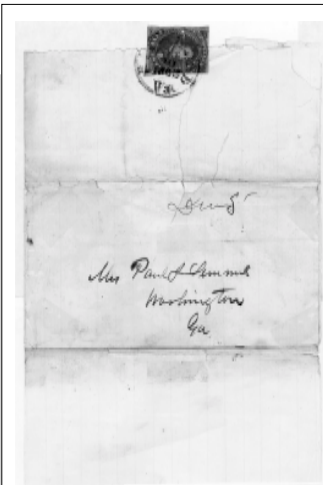 Due 5
Mrs Paul J Semmes
Washington
Ga